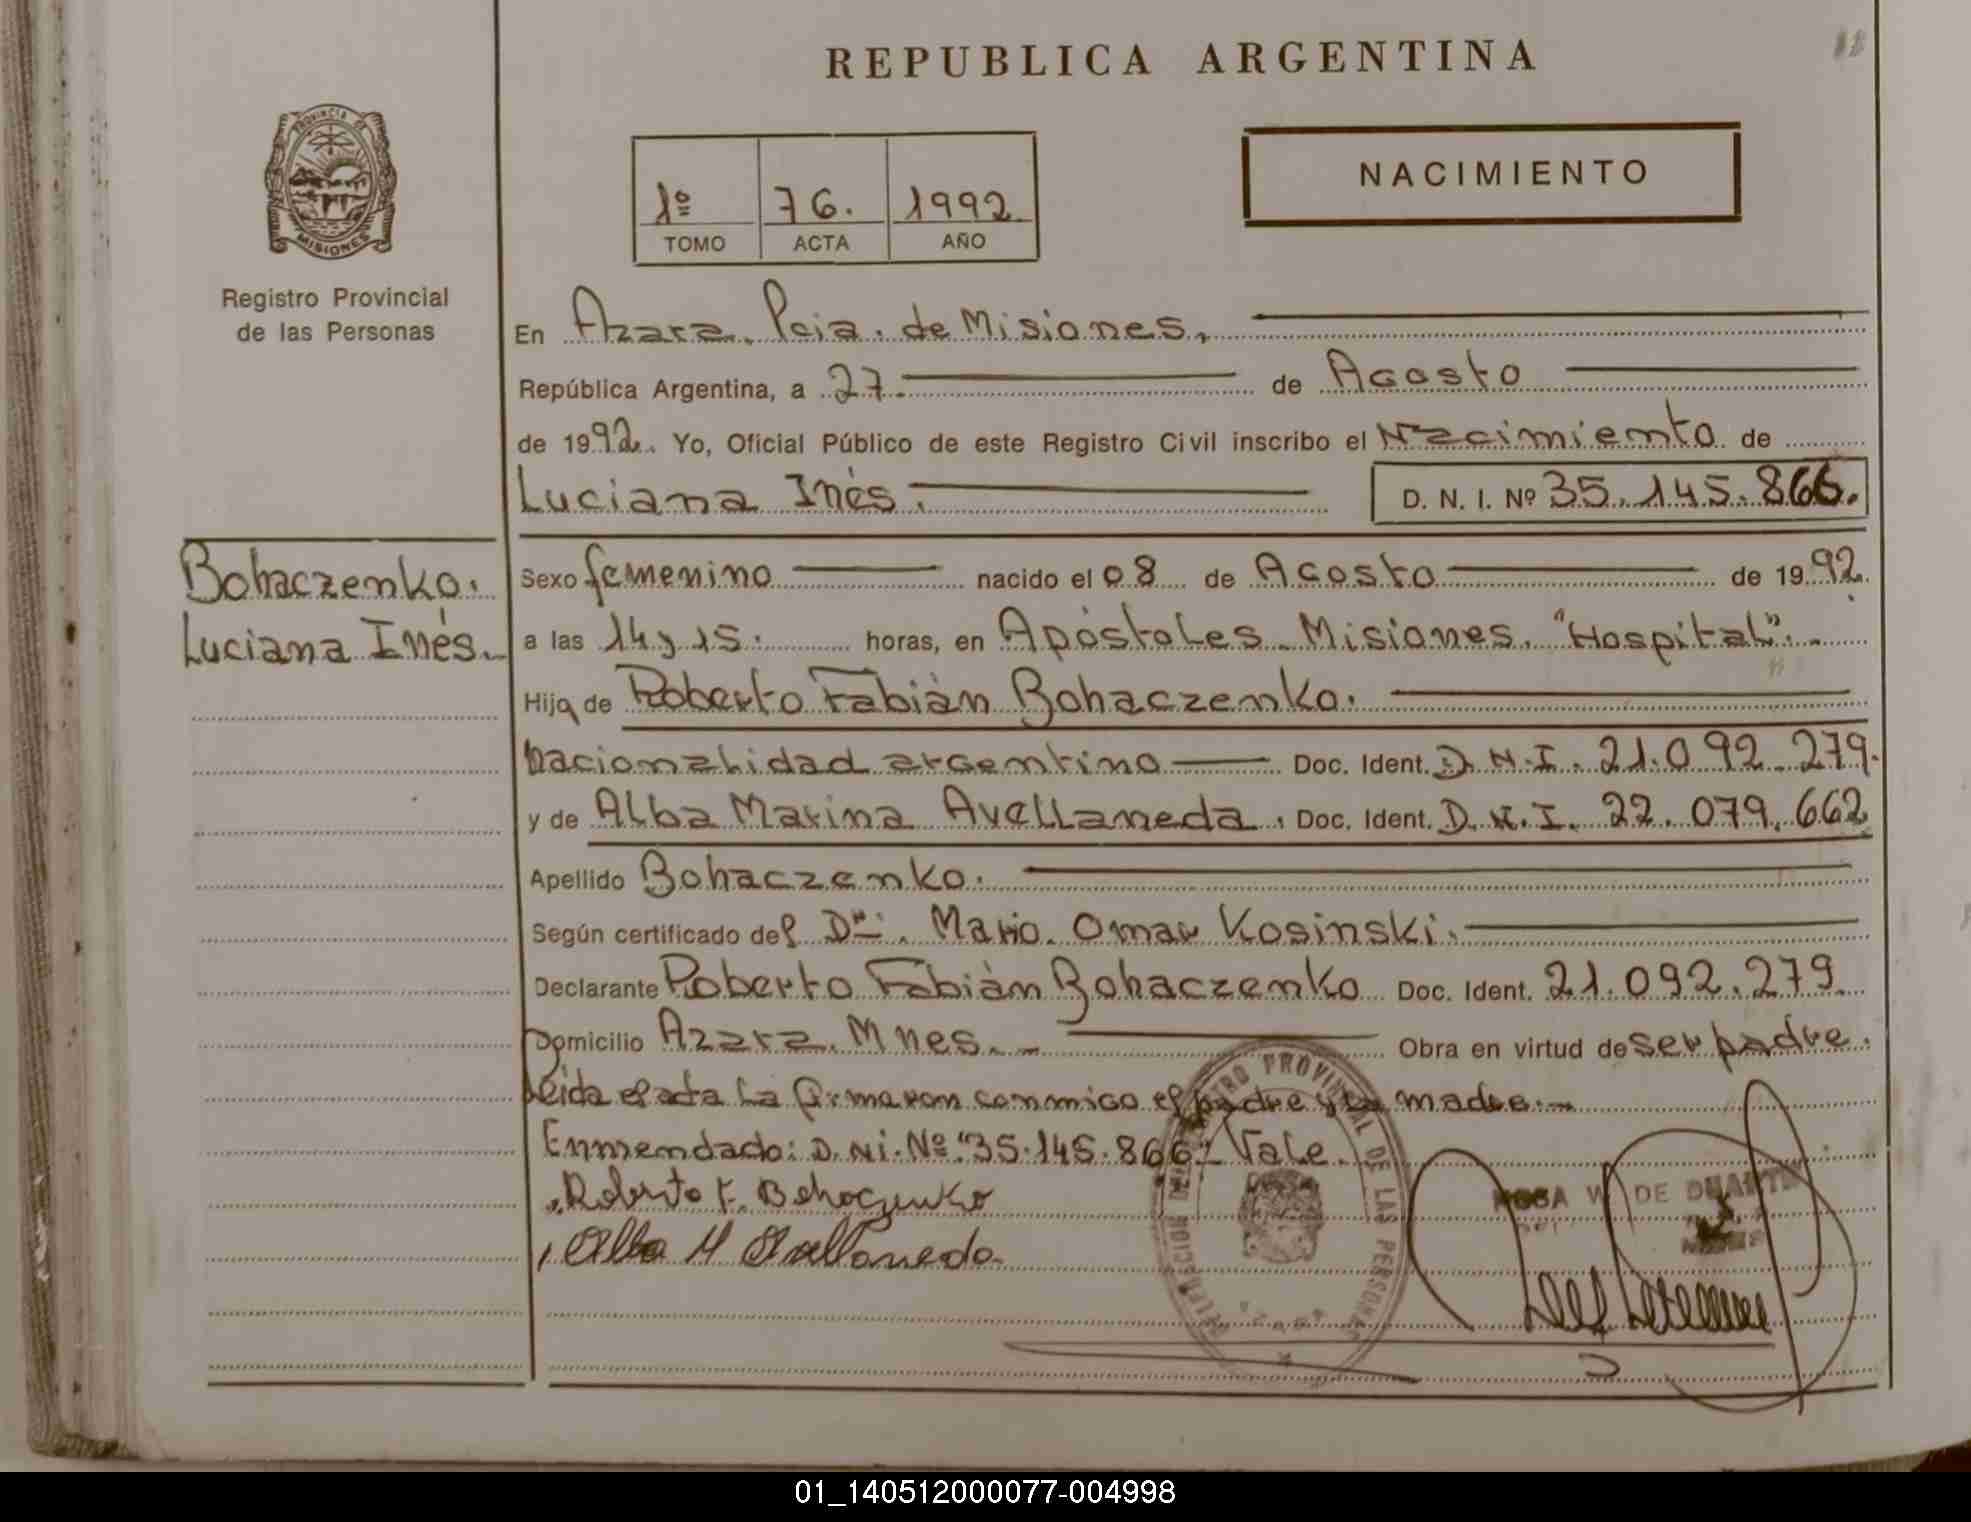 REPUBLICA ARGENTINA
PROVINCIA DE
MISIONES
Registro Provincial
de las Personas
1º 76. 1992
TOMO ACTA AÑO
NACIMIENTO
En Azara. Pcia. de Misiones.
República Argentina, a 27 de Agosto
de 1992. Yo, Oficial Público de este Registro Civil inscribo el Nacimiento de
Luciana Inés. D. N. I. Nº 35.145.866.
Bohaczenko.
Luciana Inés.
Sexo femenino nacido el 08 de Agosto de 1992.
a las 14 y 15. horas, en Apóstoles Misiones. "Hospital".
Hija de Roberto Fabián Bohaczenko.
nacionalidad argentino Doc. Ident. D.N.I. 21.092.279.
y de Alba Marina Avellaneda. Doc. Ident. D.N.I. 22.079.662
Apellido Bohaczenko.
Según certificado del Dr. Mario Omar Kosinski.
Declarante Roberto Fabián Bohaczenko Doc. Ident. 21.092.279
Domicilio Azara. Mnes. Obra en virtud de ser padre.
Leida el acta la firmaron conmigo el padre y la madre.
Enmendado: D.Ni.Nº "35.145.866" Vale.
Roberto F. Bohaczenko
Alba M Avellaneda
REGISTRO PROVINCIAL DE LAS PERSONAS
DELEGACION
ROSA W. DE DUARTE
01_140512000077-004998